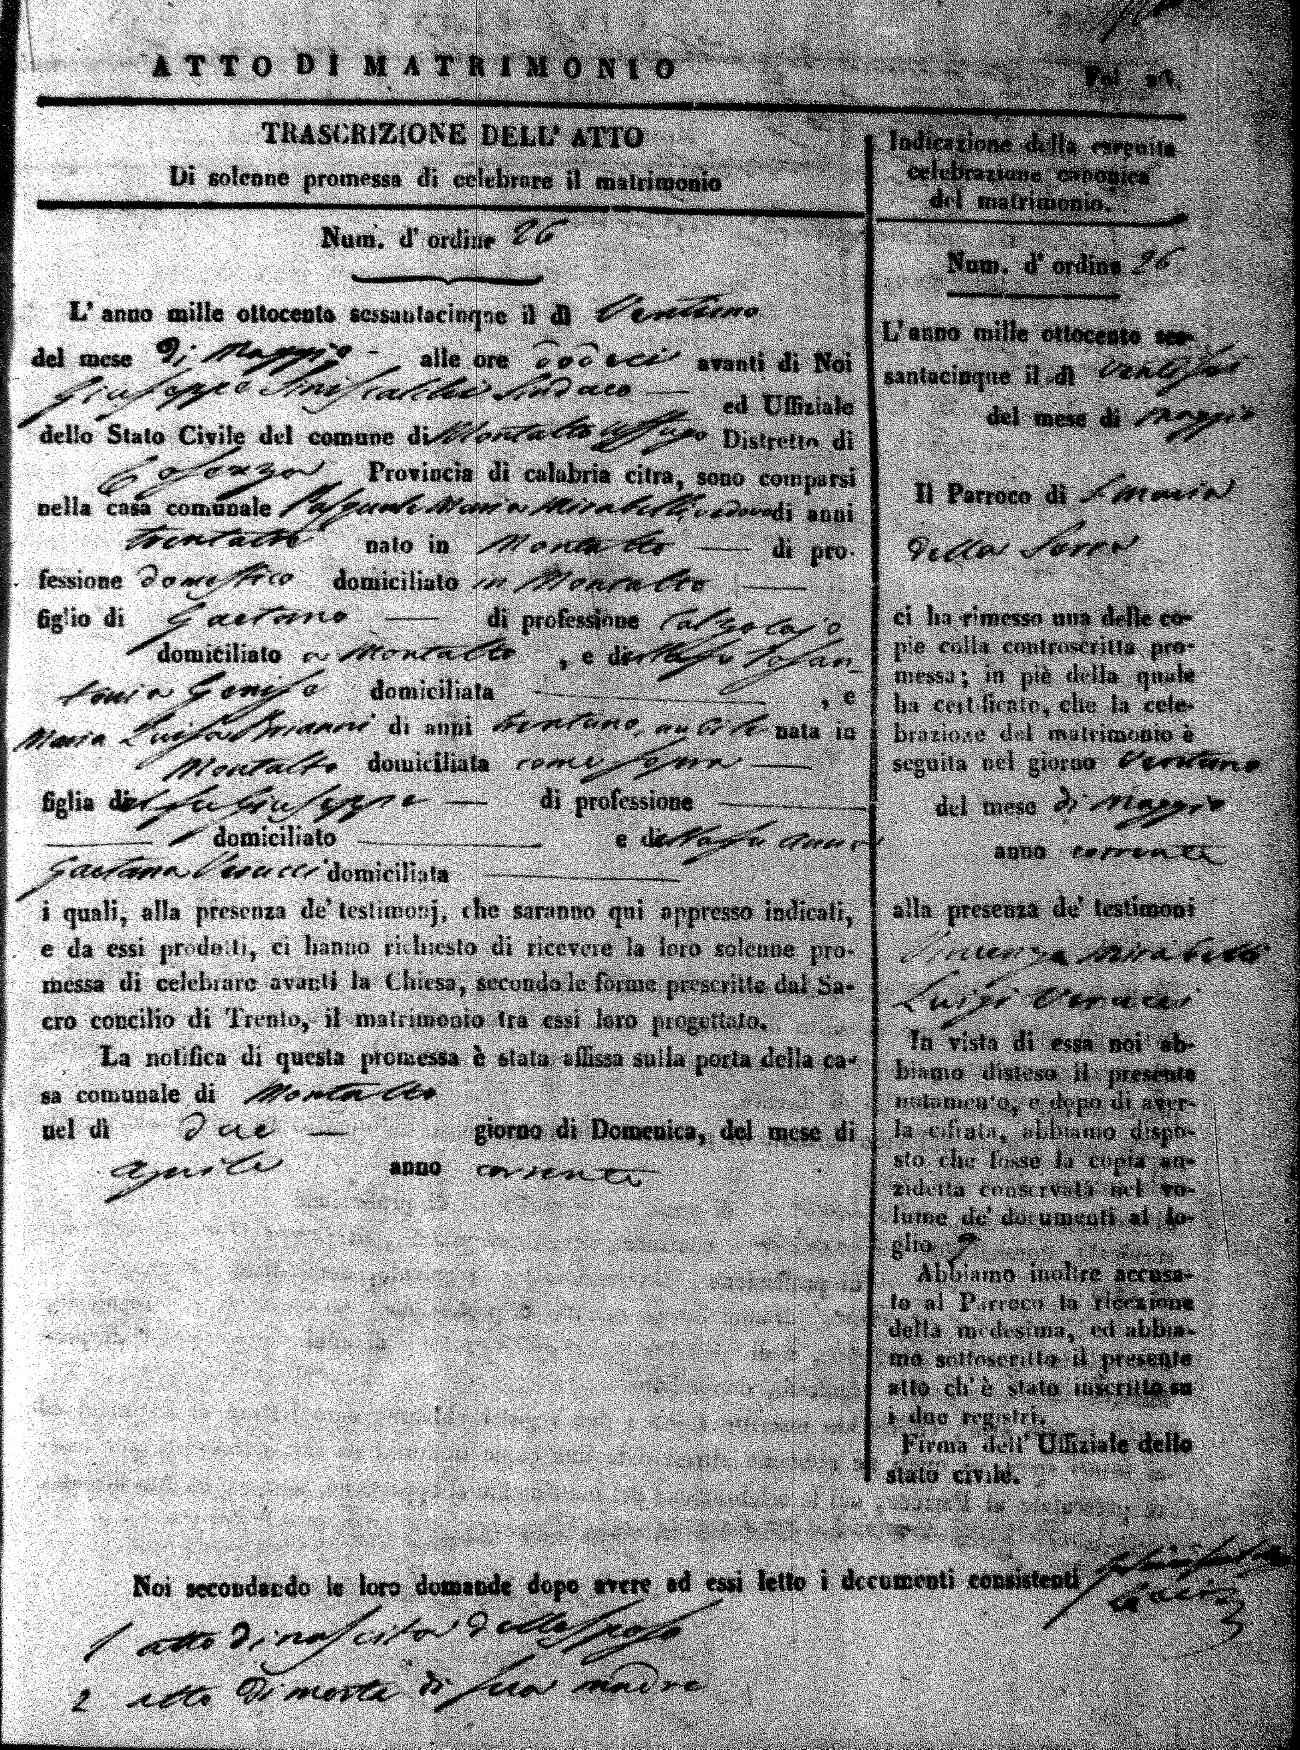 ATTO DI MATRIMONIO
Fol
TRASCRIZIONE DELL' ATTO
Di solenne promessa di celebrare il matrimonio
Num. d' ordine 26
L' anno mille ottocento sessantacinque il dì Ventuno
del mese di Maggio - alle ore dodeci avanti di Noi
Giuseppe Siniscalchi Sindaco ed Uffiziale
dello Stato Civile del comune di Montalto Uffugo Distretto di
Cosenza Provincia di calabria citra, sono comparsi
nella casa comunale Pasquale Maria Mirabelli, vedovo di anni
trentatto nato in Montalto di pro-
fessione domestico domiciliato in Montalto
figlio di Gaetano di professione Calzolajo
domiciliato a Montalto , e della fu
Genise domiciliata , e
Maria Luisa di anni trentuno, nubile nata in
Montalto domiciliata come sopra
figlia del fu Giuseppe di professione
domiciliato e della fu Anna
Gaetana Verucci domiciliata
i quali, alla presenza de' testimonj, che saranno qui appresso indicati,
e da essi prodotti, ci hanno richiesto di ricevere la loro solenne pro-
messa di celebrare avanti la Chiesa, secondo le forme prescritte dal Sa-
cro concilio di Trento, il matrimonio tra essi loro progettato.
La notifica di questa promessa è stata affissa sulla porta della ca-
sa comunale di Montalto
nel dì due giorno di Domenica, del mese di
Aprile anno corrente
Indicazione della eseguita
celebrazione canonica
del matrimonio.
Num. d' ordine 26
L' anno mille ottocento ses-
santacinque il dì ventisei
del mese di Maggio
Il Parroco di S. Maria
della Serra
ci ha rimesso una delle co-
pie colla controscritta pro-
messa; in piè della quale
ha certificato, che la cele-
brazione del matrimonio è
seguita nel giorno Ventuno
del mese di Maggio
anno corrente
alla presenza de' testimoni
Vincenzo Mirabelli
Luigi Verucci
In vista di essa noi ab-
biamo disteso il presente
notamento, e dopo di aver-
la cifrata, abbiamo dispo-
sto che fosse la copia an-
zidetta conservata nel vo-
lume de' documenti al fo-
glio
Abbiamo inoltre accusa-
to al Parroco la ricezione
della medesima, ed abbia-
mo sottoscritto il presente
atto ch' è stato inscritto su
i due registri.
Firma dell' Uffiziale dello
stato civile.
Noi secondando le loro domande dopo avere ad essi letto i documenti consistenti
1 atto di nascita dello sposo
2 atto di morte di sua madre